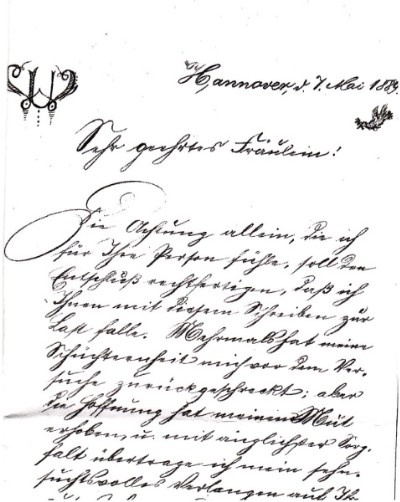 Hannover, d. 7. Mai 1889.
Sehr geehrtes Fräulein!
Die Achtung allein, die ich
für Ihre Person fühle, soll den
Entschluß rechtfertigen, daß ich
Ihnen mit diesem Schreiben zur
Last falle. Mehrmals hat meine
Schüchternheit mich vor dem Ver-
suche zurückgeschreckt; aber
die Hoffnung hat meinen Mut
erhoben, u. mit ängstlicher Sorg-
falt übertrage ich mein sehn-
suchtsvolles Verlangen auf